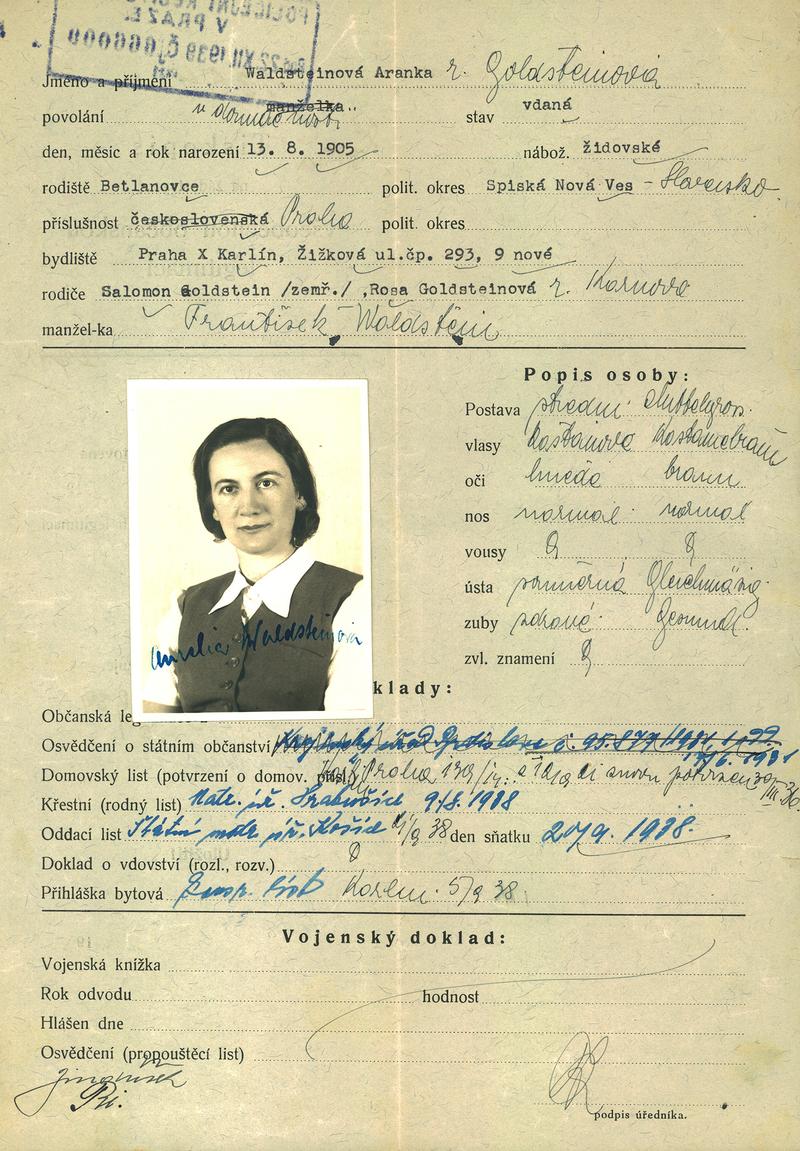 POLICEJNÍ
V PRAZE
22.XII.1939 Č. 066000
Jméno a příjmení Waldsteinová Aranka r. Goldsteinová
povolání manželka v domácnosti stav vdaná
den, měsíc a rok narození 13. 8. 1905 nábož. židovské
rodiště Betlanovce polit. okres Spiská Nová Ves - Slovensko
příslušnost československá Praha polit. okres
bydliště Praha X Karlín, Žižková ul.čp. 293, 9 nové
rodiče Salomon Goldstein /zemř./ ,Rosa Goldsteinová r.
manžel-ka František Waldstein
Popis osoby:
Postava střední Mittelgross.
vlasy kaštanové Kastanebraun
oči hnědé braun
nos normal normal
vousy
ústa souměrná Gleichmässig
zuby zdravé Gesund.
zvl. znamení
Amalia Waldsteinová
klady:
Občanská leg
Osvědčení o státním občanství č. 95.879/1931
Domovský list (potvrzení o domov. přísl.) Praha
Křestní (rodný list) Matr. úř. 9/8. 1908
Oddací list Státní matr. úř. Košice 38 den sňatku 20/9. 1938.
Doklad o vdovství (rozl., rozv.)
Přihláška bytová 5/9 38
Vojenský doklad:
Vojenská knížka
Rok odvodu hodnost
Hlášen dne
Osvědčení (propouštěcí list)
podpis úředníka.